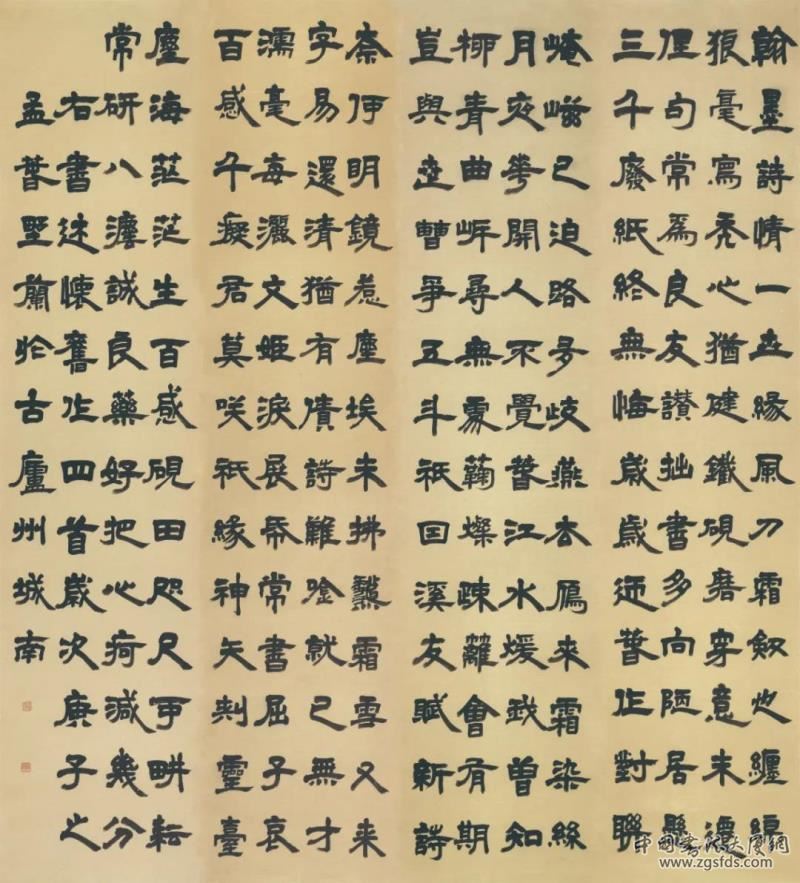 翰墨詩情一世緣風刀霜劍也纏綿
狼毫寫禿心猶健鐵硯磨穿意未遷
俚句常為良友讚拙書多向陋居懸
三千廢紙終無悔歲歲迎春作對聯
崦嵫已迫路多歧燕去鴈來霜染絲
月夜花開人不覺春江水煖我曾知
柳青曲岸尋無處菊燦疎籬會有期
豈與世曹爭五斗祇因溪友賦新詩
奈伊明鏡惹塵埃未拂鬢霜雪又來
字易還清猶有債詩難唫就已無才
濡毫每灑文姬淚展紙常書屈子哀
百感千癡君莫笑祇緣神矢刺靈臺
塵海茫茫生百感硯田咫尺手畊耘
常研八灋誠良藥好把心痾減幾分
右書述懷舊作四首歲次庚子之
孟春於古廬州城南
中国书法大厦網
www.zgsfds.com